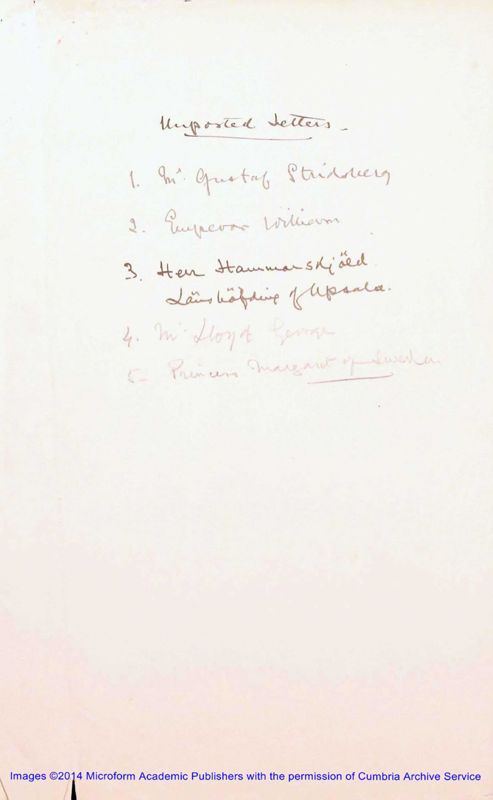 Unposted Letters.
1. Mr Gustaf Stridsberg
2. Emperor William
3. Herr Hammarskjöld
Länshöfding of Upsala.
4. Mr Lloyd George
5- Princess Margaret of Sweden
Images ©2014 Microform Academic Publishers with the permission of Cumbria Archive Service